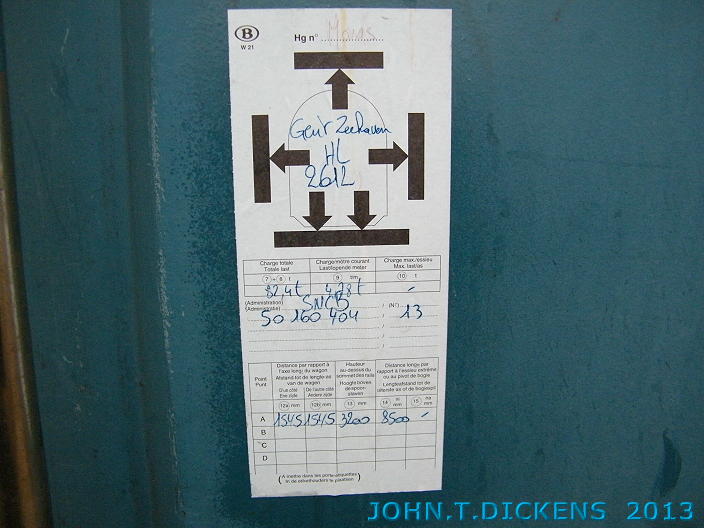 B
W 21
Hg n° Mons
Gent Zeehaven
HL
2612
Charge totale
Totale last
Chargemètre courant
Last/lopende meter
Charge max./essieu
Max. last/as
7 + 8 t
9 t/m
10 t
82,4t
4,78t
(Administration)
(Administratie)
SNCB
(N°)
50 160 404
13
Point
Punt
Distance par rapport à
l'axe long. du wagon
Afstand tot de lengte-as
van de wagen
D'un côté
Ene zijde
De l'autre côté
Andere zijde
Hauteur
au-dessus du
sommet des rails
Hoogte boven
de spoor-
staven
Distance long. par
rapport à l'essieu extrême
ou au pivot de bogie
Lengteafstand tot de
uiterste as of de bogiespil
12a mm
12b mm
13 mm
14 ni mm
15 na mm
A 1545 1545 3200 8500
B
C
D
(A mettre dans les porte-étiquettes
In de etikethouders te plaatsen)
JOHN.T.DICKENS 2013